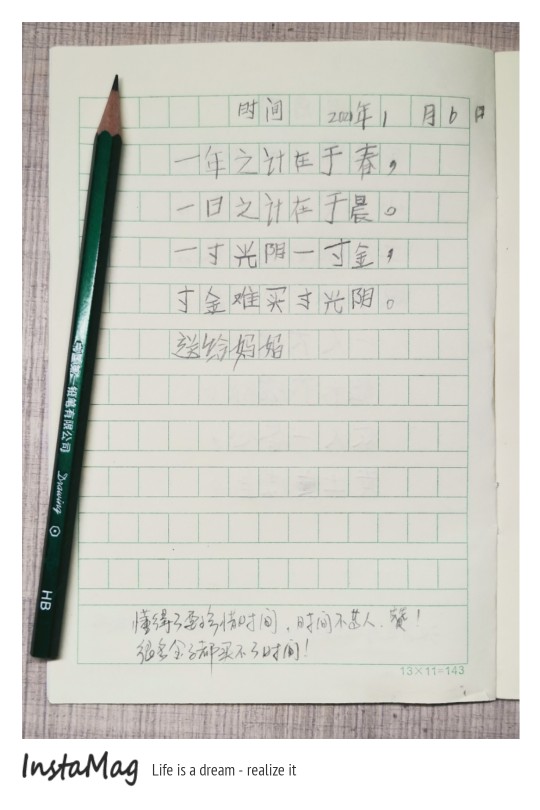 时间 2021年1月6日
一年之计在于春，
一日之计在于晨。
一寸光阴一寸金，
寸金难买寸光阴。
送给妈妈
懂得了要珍惜时间，时间不等人，赞！
很多金子都买不了时间！
13×11=143
铅笔有限公司
Drawing
HB
InstaMag
Life is a dream - realize it